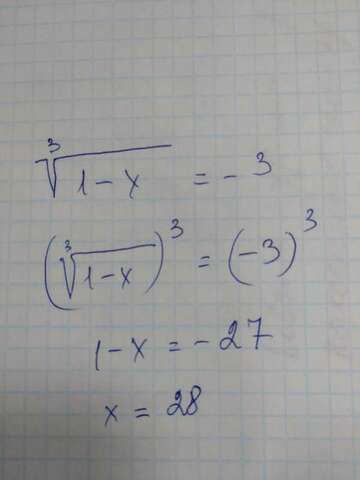 ∛(1-x) = -3
(∛(1-x))³ = (-3)³
1-x = -27
x = 28